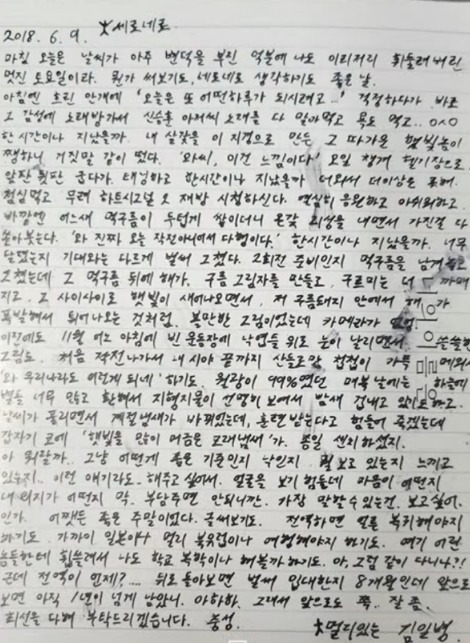 2018. 6. 9. ★세로네로
마침 오늘은 날씨가 아주 변덕을 부린 덕분에 나도 이리저리 휘둘려버린
멋진 토요일이라. 뭔가 써보기도, 세로네로 생각하기도 좋은 날.
아침엔 흐린 안개에 '오늘은 또 어떤하루가 되시려고..' 걱정하다가 바로
그 감성에 노래방가서 신승훈 아저씨 소재를 다 말아먹고 욕도 먹고.. ㅇㅅㅇ
한시간이나 지났을까. 내 살갗을 이 지경으로 만든 그 따가운 햇빛놈이
쨍하니 거짓말 같이 떴다. '와씨, 이건 느낌이다' 오일 챙겨 헬기장으로.
앞판 뒷판 굽다가. 태닝하고 한시간이나 지났을까 더워서 더이상은 포기.
점심먹고 무려 하트시그널 오 재방 시청하신다. 열심히 응원하고 아쉬워하고.
바깥엔 어느새 먹구름이 두텁게 쌓이더니 온갖 괴성을 내면서 가진걸 다
쏟아붓는다. '와 진짜 오늘 작전아니어서 다행이다.' 한시간이나 지났을까. 너무
단편이지 기대와는 다르게 벌써 그쳤다. 2회전 준비인지 먹구름을 남겨놓고
그쳤는데 그 먹구름 뒤에 해가. 구름 그림자를 만들고. 구르미는 더 까매
지고. 그 사이사이로 햇빛이 새어나오면서, 저 구름돼지 안에서 해가
폭발해서 튀어나오는 것처럼. 볼만한 그림이었는데 카메라가 없었
이전에도 11월 어느 아침에 빈 운동장에 낙엽들 위로 눈이 날리면서 쓸쓸한
그림도. 처음 작전나가서 내 시야 끝까지 산들로만 첩첩이 가득 메워
'와 우리나라도 이런게 되네' 하기도. 월광이 99%였던 매복 날에는 하늘에
별들 너무 많고 환해서 지형지물이 선명히 보여서 밤새 겁내고 있기도 하고.
날씨가 풀리면서 계절냄새가 바뀌었는데, 훈련 받는다고 힘들어 죽겠는데
갑자기 코에 '햇빛을 많이 머금은 모래냄새'가. 종일 센치하셨지.
아 뭐랄까.. 그냥 어떻게 좋은 기준인지 낙인지 뭘 보고 있는지 느끼고
있는지.. 이런 얘기라도. 해주고 싶어서. 얼굴을 보기 힘들테 마음이 어떤지
내 의지가 어떤지 막. 부담주면 안되니깐. 가장 말할수 있는건. 보고싶어.
인가. 어쨌든 좋은 주말이었다. 글써보기도. 전역하면 얼른 복귀해야지
하기도. 가까이 일본이나 멀리 북유럽이나 여행해야지 하기도. 여기 어린
놈들한테 휩쓸려서 나도 학교 복학이나 해볼까 하기도. 아, 그럼 같이 다니나?!
근데 전역이 언제?.... 뒤로 돌아보면 벌써 입대한지 8개월인데 앞으로
보면 아직 1년이 넘게 남았니. 아하하. 그래서 앞으로도 쭉. 잘 좀.
최선을 다해 부탁드리겠습니다. 충성.
★멀리있는 김일병